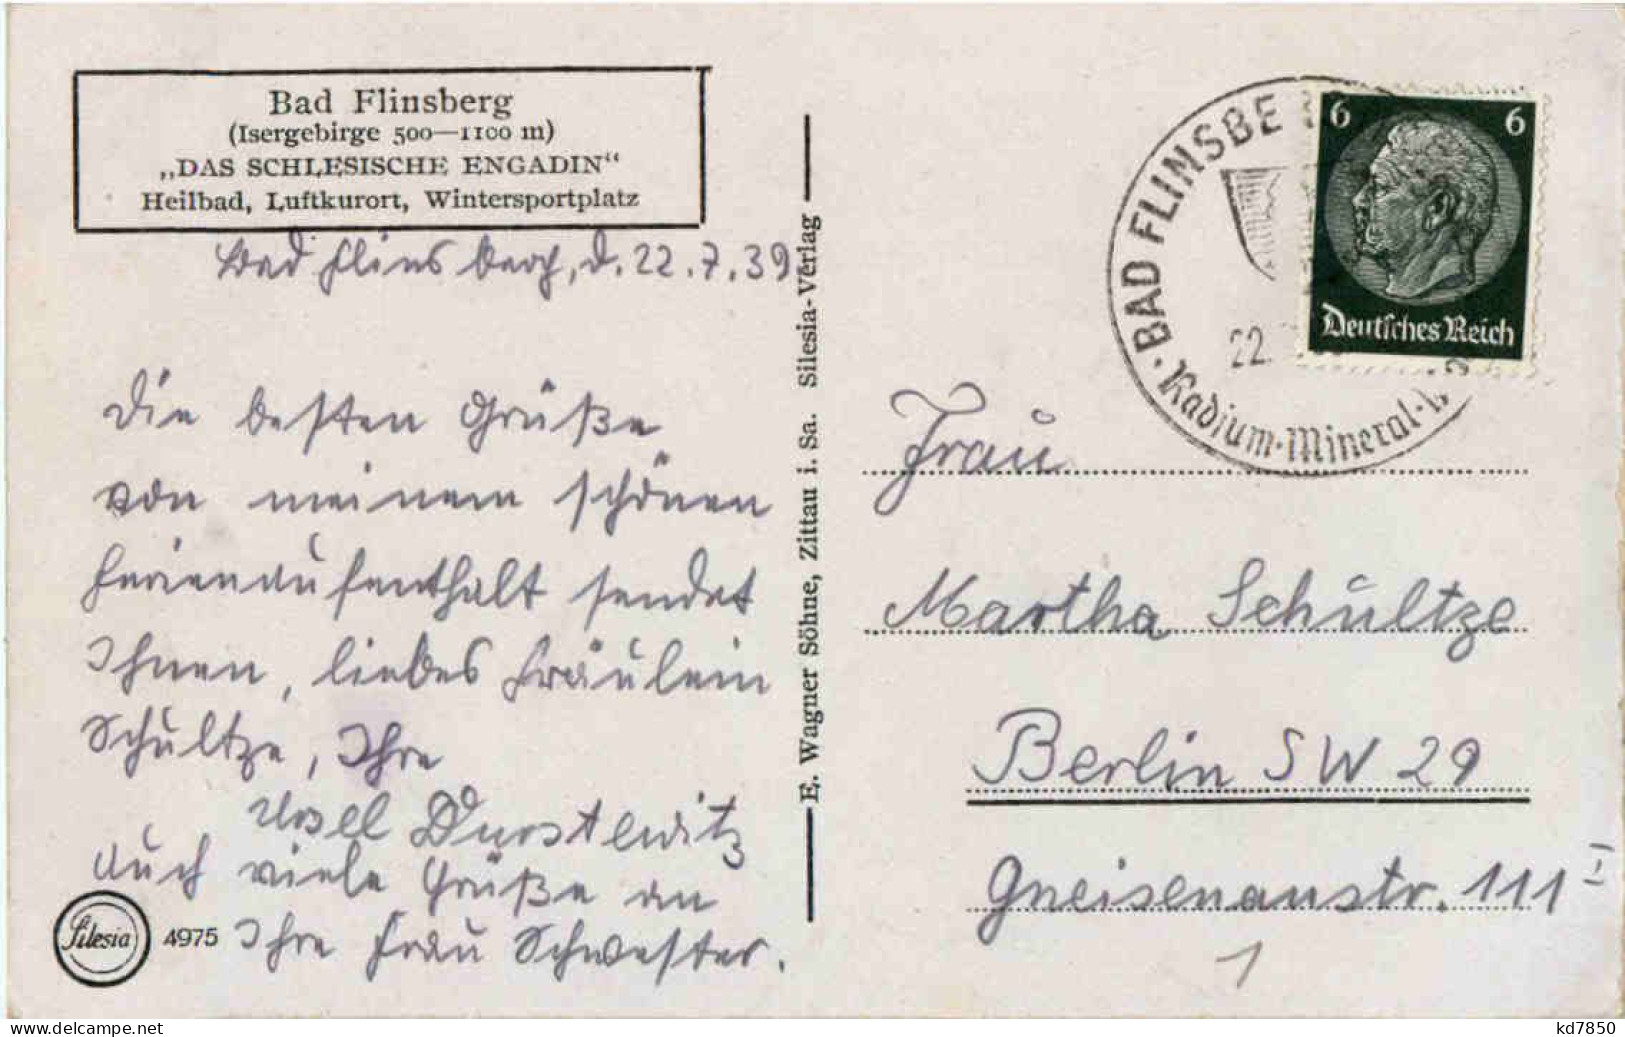 Bad Flinsberg
(Isergebirge 500—1100 m)
„DAS SCHLESISCHE ENGADIN“
Heilbad, Luftkurort, Wintersportplatz
Bad Flinsberg, d. 22.7.39
Die besten Grüße
von meinem schönen
Ferienaufenthalt sendet
Ihnen, liebes Fräulein
Schultze, Ihre
Ursel Durstewitz
Auch viele Grüße an
Ihre Frau Schwester.
Silesia 4975
E. Wagner Söhne, Zittau i. Sa. Silesia-Verlag
BAD FLINSBE
22.
Radium-Mineral-
6 6
Deutsches Reich
Frau
Martha Schultze
Berlin SW 29
Gneisenaustr. 111 I
1
www.delcampe.net
kd7850